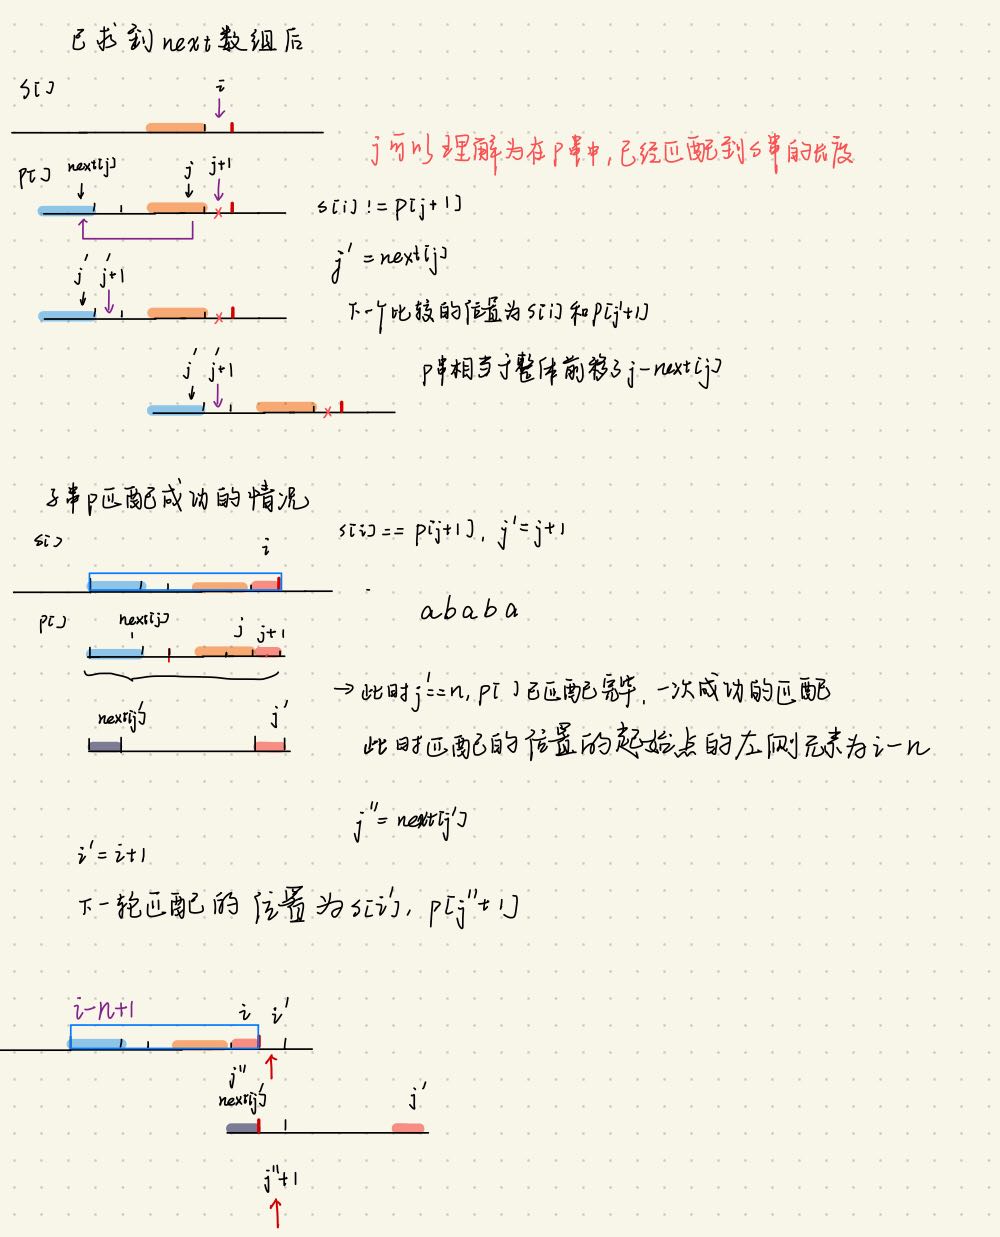 已求到next数组后
S[]
i
j可以理解为在P串中,已经匹配到S串的长度
P[] next[j] j j+1
s[i] != p[j+1]
j' = next[j]
j' j'+1
下一个比较的位置为s[i]和p[j'+1]
p串相当于整体前移了j-next[j]
j' j'+1
子串p匹配成功的情况
s[i] == p[j+1], j'=j+1
S[]
i
ababa
P[] next[j] j j+1
→此时j'==n, p[]已匹配完毕, 一次成功的匹配
next[j'] j'
此时匹配的位置的起始点的左侧元素为i-n
j''= next[j']
i'= i+1
下一轮匹配的位置为s[i'], p[j''+1]
i-n+1 i i'
j''
next[j'] j'
j''+1